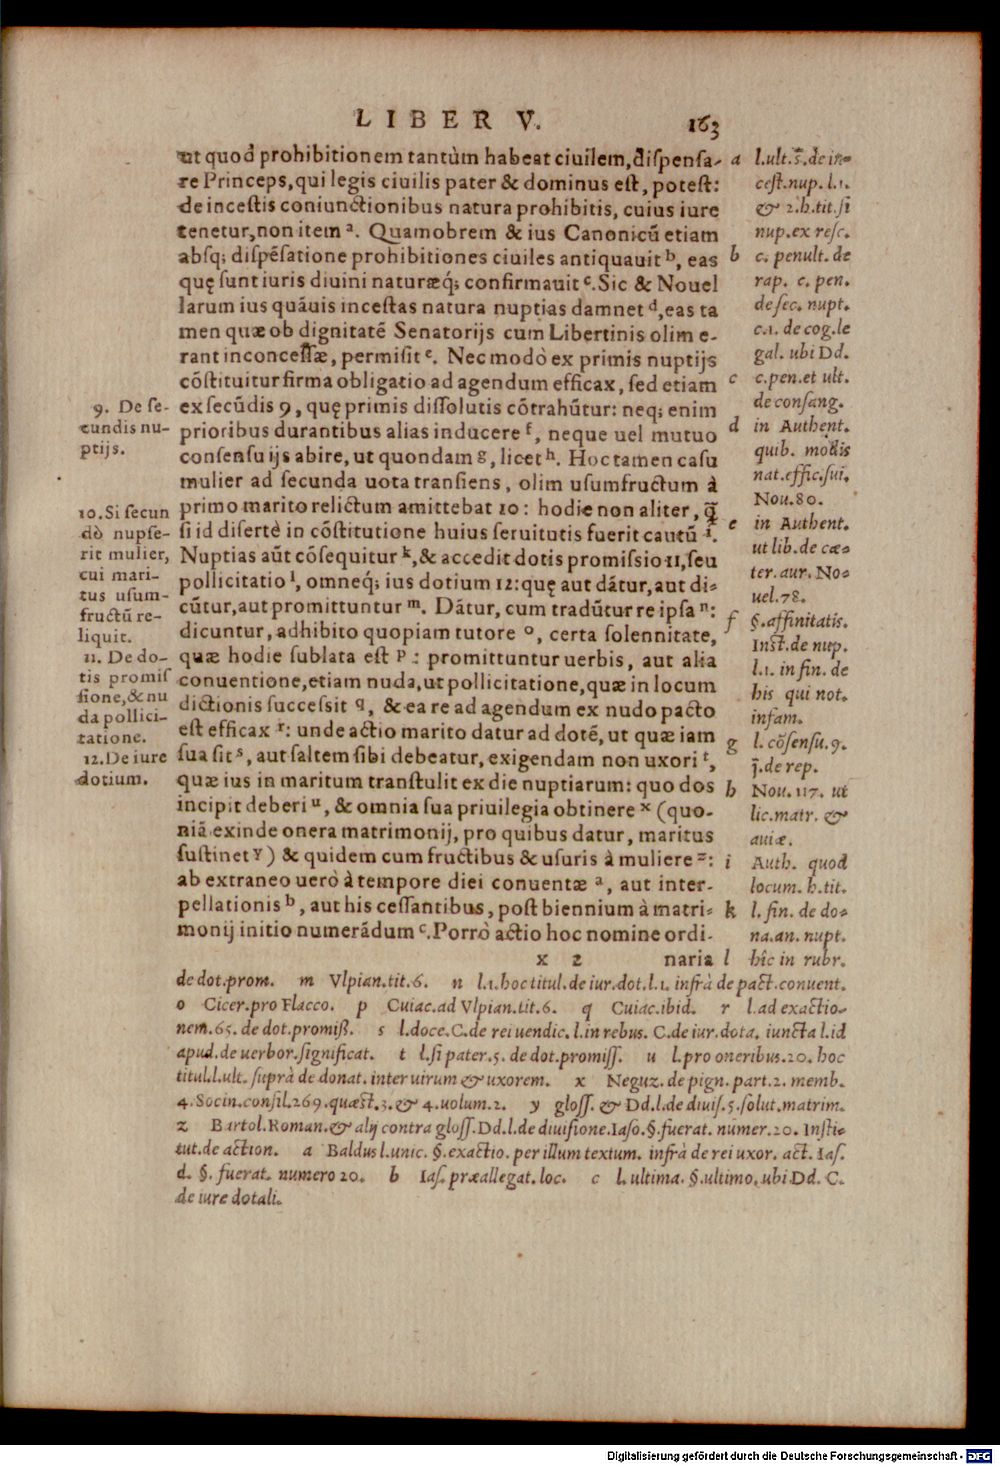 LIBER V. 163
ut quod prohibitionem tantùm habeat ciuilem, dispensa-
re Princeps, qui legis ciuilis pater & dominus est, potest:
de incestis coniunctionibus natura prohibitis, cuius iure
tenetur, non item a. Quamobrem & ius Canonicũ etiam
absq; dispẽsatione prohibitiones ciuiles antiquauit b, eas
quę sunt iuris diuini naturæq́; confirmauit c. Sic & Nouel
larum ius quáuis incestas natura nuptias damnet d, eas ta
men quæ ob dignitatẽ Senatorijs cum Libertinis olim e-
rant inconcessæ, permisit e. Nec modò ex primis nuptijs
cõstituitur firma obligatio ad agendum efficax, sed etiam
ex secũdis 9, quę primis dissolutis cõtrahũtur: neq; enim
prioribus durantibus alias inducere f, neque uel mutuo
consensu ijs abire, ut quondam g, licet h. Hoc tamen casu
mulier ad secunda uota transiens, olim usumfructum à
primo marito relictum amittebat 10: hodie non aliter, q̃
si id disertè in cõstitutione huius seruitutis fuerit cautũ i.
Nuptias aũt cõsequitur k, & accedit dotis promissio 11, seu
pollicitatio l, omneq́; ius dotium 12: quę aut dátur, aut di-
cũtur, aut promittuntur m. Dãtur, cum tradũtur re ipsa n:
dicuntur, adhibito quopiam tutore o, certa solennitate,
quæ hodie sublata est p: promittuntur uerbis, aut alia
conuentione, etiam nuda, ut pollicitatione, quæ in locum
dictionis successit q, & ea re ad agendum ex nudo pacto
est efficax r: unde actio marito datur ad dotẽ, ut quæ iam
sua sit s, aut saltem sibi debeatur, exigendam non uxori t,
quæ ius in maritum transtulit ex die nuptiarum: quo dos
incipit deberi u, & omnia sua priuilegia obtinere x (quo-
niã exinde onera matrimonij, pro quibus datur, maritus
sustinet y) & quidem cum fructibus & usuris à muliere z:
ab extraneo uerò à tempore diei conuentæ a, aut inter-
pellationis b, aut his cessantibus, post biennium à matri-
monij initio numerãdum c. Porrò actio hoc nomine ordi-
x 2 naria
9. De se-
cundis nu-
ptijs.
10. Si secun
dò nupse-
rit mulier,
cui mari-
tus usum-
fructũ re-
liquit.
11. De do-
tis promis
sione, & nu
da pollici-
tatione.
12. De iure
dotium.
a l. ult. s̃. de in-
cest. nup. l. 1.
& 2. h. tit. si
nup. ex resc.
b c. penult. de
rap. c. pen.
de sec. nupt.
c. 1. de cog. le
gal. ubi Dd.
c c. pen. et ult.
de consang.
d in Authent.
quib. modis
nat. effic. sui.
Nou. 80.
e in Authent.
ut lib. de cæ-
ter. aur. No-
uel. 78.
f §. affinitatis.
Inst. de nup.
l. 1. in fin. de
his qui not.
infam.
g l. cõsensu. 9.
j̃. de rep.
h Nou. 117. ut
lic. matr. &
auiæ.
i Auth. quod
locum. h. tit.
k l. fin. de do-
na. an. nupt.
l hîc in rubr.
de dot. prom. m Vlpian. tit. 6. n l. 1. hoc titul. de iur. dot. l. 1. infrà de pact. conuent.
o Cicer. pro Flacco. p Cuiac. ad Vlpian. tit. 6. q Cuiac. ibid. r l. ad exactio-
nem. 65. de dot. promiß. s l. doce. C. de rei uendic. l. in rebus. C. de iur. dota. iuncta l. id
apud. de uerbor. significat. t l. si pater. 5. de dot. promiss. u l. pro oneribus. 20. hoc
titul. l. ult. suprà de donat. inter uirum & uxorem. x Neguz. de pign. part. 2. memb.
4. Socin. consil. 269. quæst. 3. & 4. uolum. 2. y gloss. & Dd. l. de diuis. 5. solut. matrim.
z Bartol. Roman. & alij contra gloss. Dd. l. de diuisione. Iaso. §. fuerat. numer. 20. Insti-
tut. de action. a Baldus l. unic. §. exactio. per illum textum. infrà de rei uxor. act. Ias.
d. §. fuerat. numero 20. b Ias. præallegat. loc. c l. ultima. §. ultimo, ubi Dd. C.
de iure dotali.
Digitalisierung gefördert durch die Deutsche Forschungsgemeinschaft - DFG